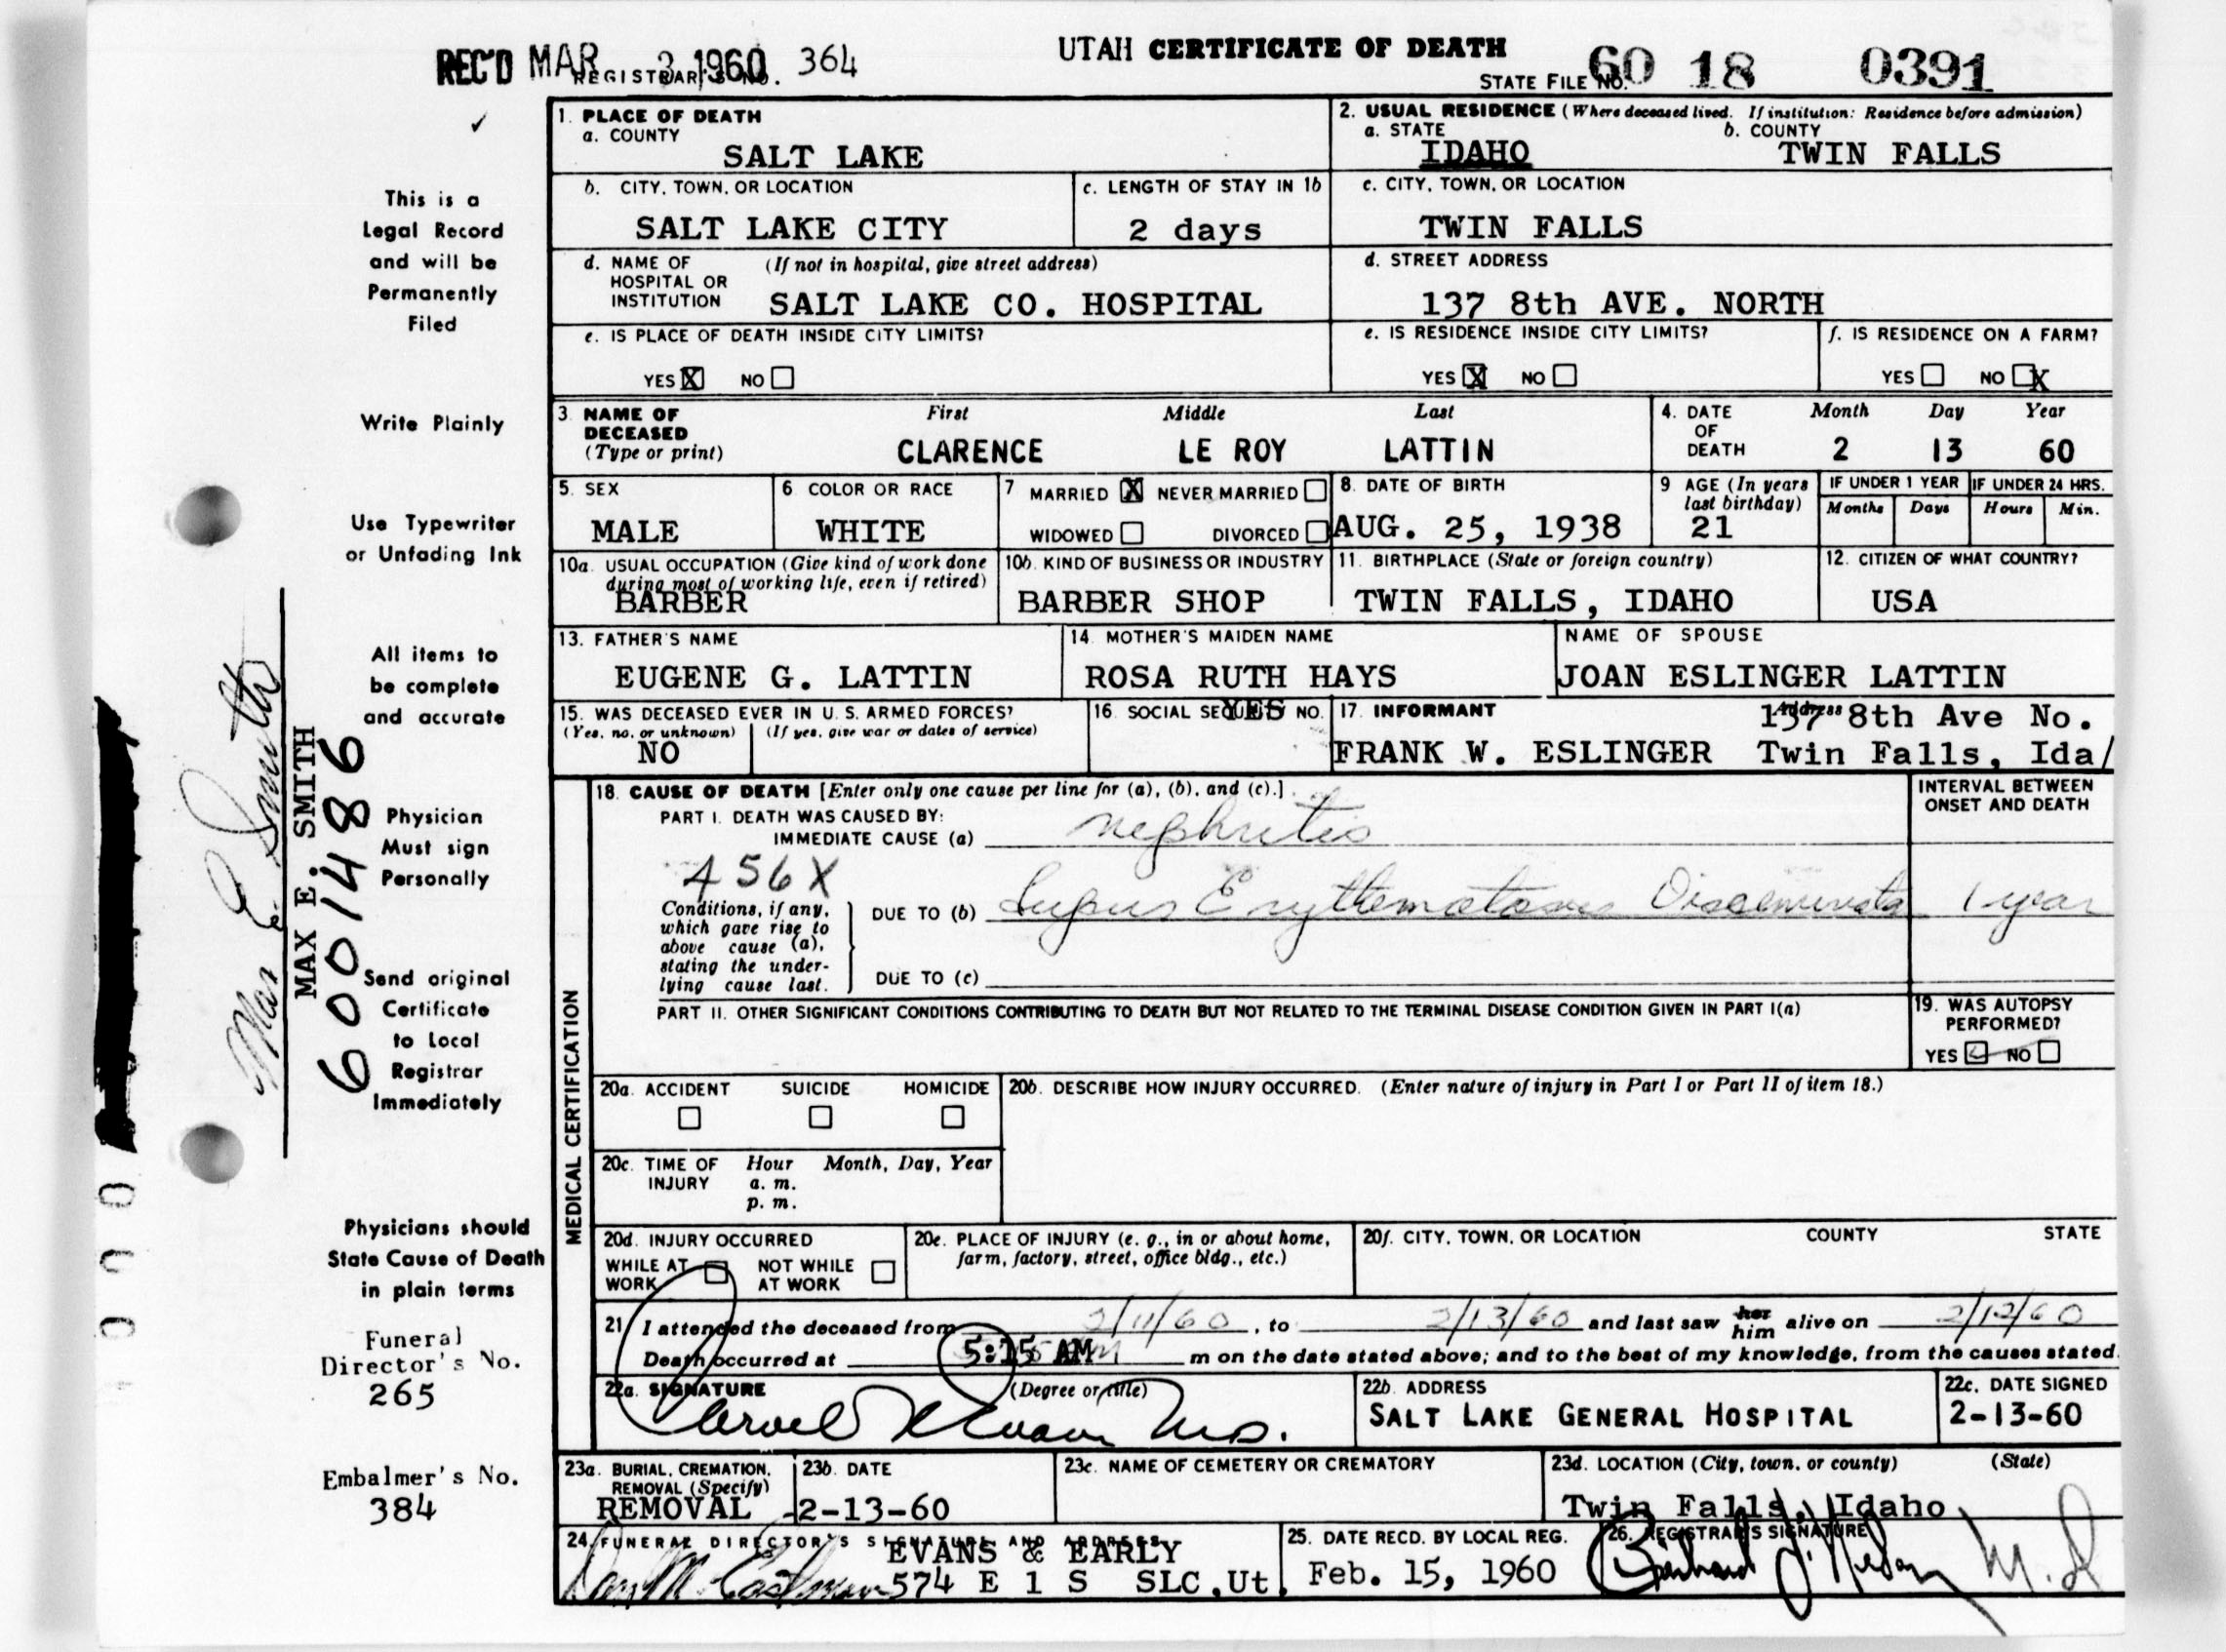 REC'D MAR 3 1960
REGISTRAR'S NO. 364
UTAH CERTIFICATE OF DEATH
STATE FILE NO. 60 18 0391
✓
This is a
Legal Record
and will be
Permanently
Filed
Write Plainly
Use Typewriter
or Unfading Ink
All items to
be complete
and accurate
Physician
Must sign
Personally
Send original
Certificate
to Local
Registrar
Immediately
Physicians should
State Cause of Death
in plain terms
Funeral
Director's No.
265
Embalmer's No.
384
Max E. Smith
MAX E. SMITH
60014486
1. PLACE OF DEATH
a. COUNTY
SALT LAKE
2. USUAL RESIDENCE (Where deceased lived. If institution: Residence before admission)
a. STATE b. COUNTY
IDAHO TWIN FALLS
b. CITY, TOWN, OR LOCATION
SALT LAKE CITY
c. LENGTH OF STAY IN 1b
2 days
c. CITY, TOWN, OR LOCATION
TWIN FALLS
d. NAME OF (If not in hospital, give street address)
HOSPITAL OR
INSTITUTION SALT LAKE CO. HOSPITAL
d. STREET ADDRESS
137 8th AVE. NORTH
e. IS PLACE OF DEATH INSIDE CITY LIMITS?
YES X NO
e. IS RESIDENCE INSIDE CITY LIMITS?
YES X NO
f. IS RESIDENCE ON A FARM?
YES NO X
3. NAME OF First Middle Last
DECEASED
(Type or print) CLARENCE LE ROY LATTIN
4. DATE Month Day Year
OF
DEATH 2 13 60
5. SEX
MALE
6 COLOR OR RACE
WHITE
7 MARRIED X NEVER MARRIED
WIDOWED DIVORCED
8. DATE OF BIRTH
AUG. 25, 1938
9 AGE (In years
last birthday)
21
IF UNDER 1 YEAR IF UNDER 24 HRS.
Months Days Hours Min.
10a. USUAL OCCUPATION (Give kind of work done
during most of working life, even if retired)
BARBER
10b. KIND OF BUSINESS OR INDUSTRY
BARBER SHOP
11. BIRTHPLACE (State or foreign country)
TWIN FALLS, IDAHO
12. CITIZEN OF WHAT COUNTRY?
USA
13. FATHER'S NAME
EUGENE G. LATTIN
14. MOTHER'S MAIDEN NAME
ROSA RUTH HAYS
NAME OF SPOUSE
JOAN ESLINGER LATTIN
15. WAS DECEASED EVER IN U. S. ARMED FORCES?
(Yes, no, or unknown) (If yes, give war or dates of service)
NO
16. SOCIAL SECURITY NO.
YES
17. INFORMANT Address
137 8th Ave No.
FRANK W. ESLINGER Twin Falls, Ida/
MEDICAL CERTIFICATION
18. CAUSE OF DEATH [Enter only one cause per line for (a), (b), and (c).]
INTERVAL BETWEEN
ONSET AND DEATH
PART I. DEATH WAS CAUSED BY:
IMMEDIATE CAUSE (a) nephritis
456X
Conditions, if any,
which gave rise to
above cause (a),
stating the under-
lying cause last.
DUE TO (b) Lupus Erythematosus Disseminata 1 year
DUE TO (c)
PART II. OTHER SIGNIFICANT CONDITIONS CONTRIBUTING TO DEATH BUT NOT RELATED TO THE TERMINAL DISEASE CONDITION GIVEN IN PART I(a)
19. WAS AUTOPSY
PERFORMED?
YES NO
20a. ACCIDENT SUICIDE HOMICIDE
20b. DESCRIBE HOW INJURY OCCURRED. (Enter nature of injury in Part I or Part II of item 18.)
20c. TIME OF Hour Month, Day, Year
INJURY a. m.
p. m.
20d. INJURY OCCURRED
WHILE AT NOT WHILE
WORK AT WORK
20e. PLACE OF INJURY (e. g., in or about home,
farm, factory, street, office bldg., etc.)
20f. CITY, TOWN, OR LOCATION COUNTY STATE
21 I attended the deceased from 2/11/60, to 2/13/60 and last saw her him alive on 2/12/60
Death occurred at 5:15 AM m on the date stated above; and to the best of my knowledge, from the causes stated.
22a. SIGNATURE (Degree or title)
M.D.
22b. ADDRESS
SALT LAKE GENERAL HOSPITAL
22c. DATE SIGNED
2-13-60
23a. BURIAL, CREMATION,
REMOVAL (Specify)
REMOVAL
23b. DATE
2-13-60
23c. NAME OF CEMETERY OR CREMATORY
23d. LOCATION (City, town, or county) (State)
Twin Falls, Idaho
24. FUNERAL DIRECTOR'S SIGNATURE AND ADDRESS
EVANS & EARLY
574 E 1 S SLC, Ut.
25. DATE RECD. BY LOCAL REG.
Feb. 15, 1960
26. REGISTRAR'S SIGNATURE
M.D